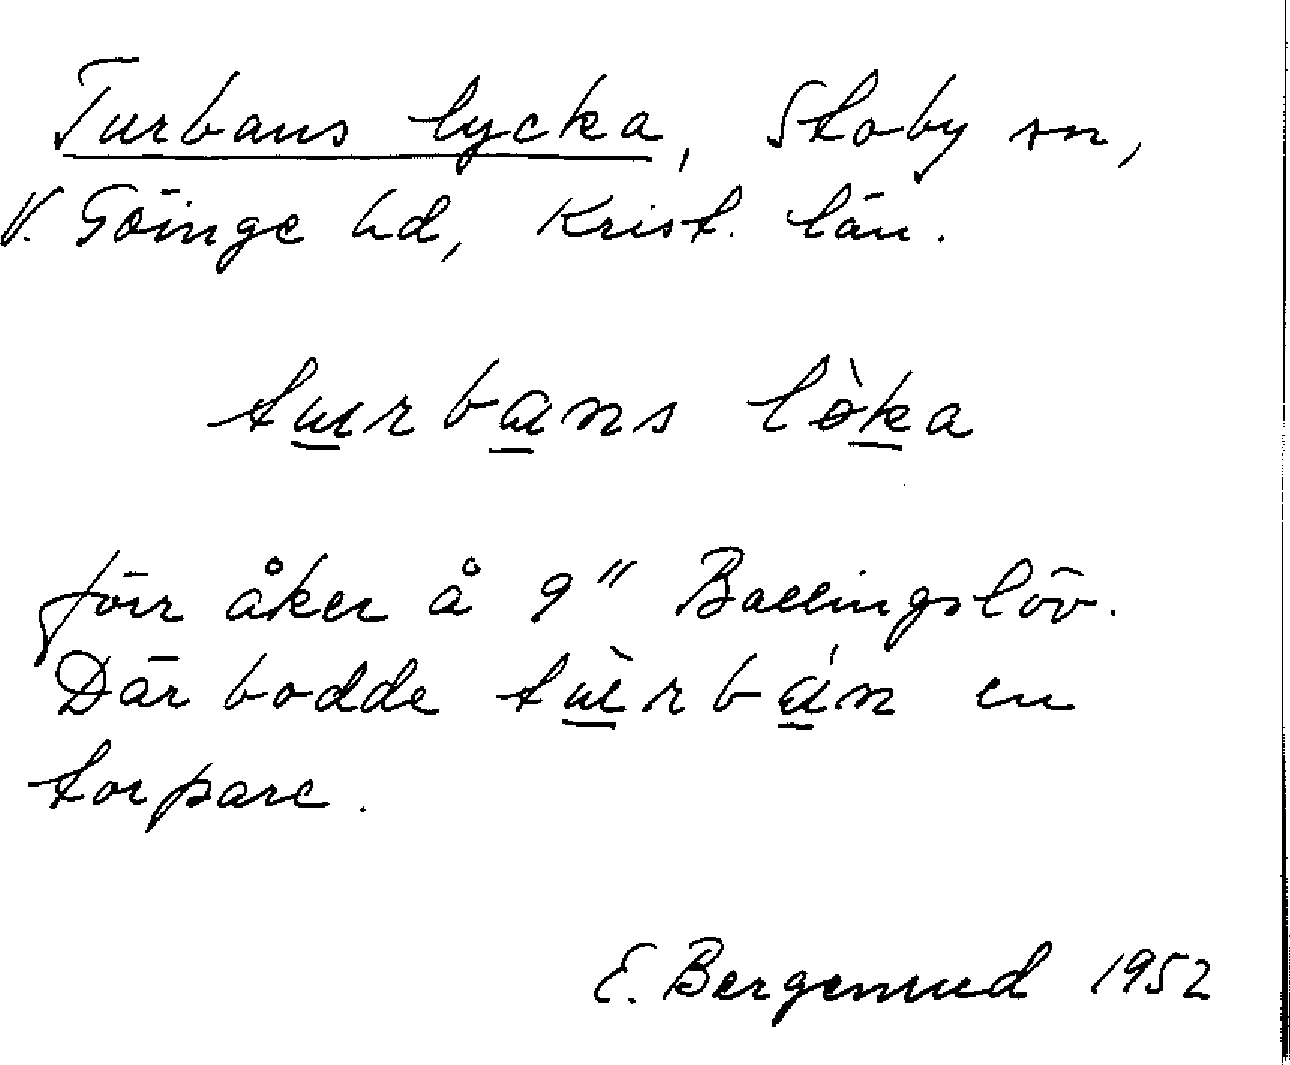 Turbans lycka, Stoby sn,
V. Göinge hd, Krist. län.
turbans lòka
förr åker å 9" Ballingslöv.
Där bodde tùrbán en
torpare.
E. Bergemud 1952